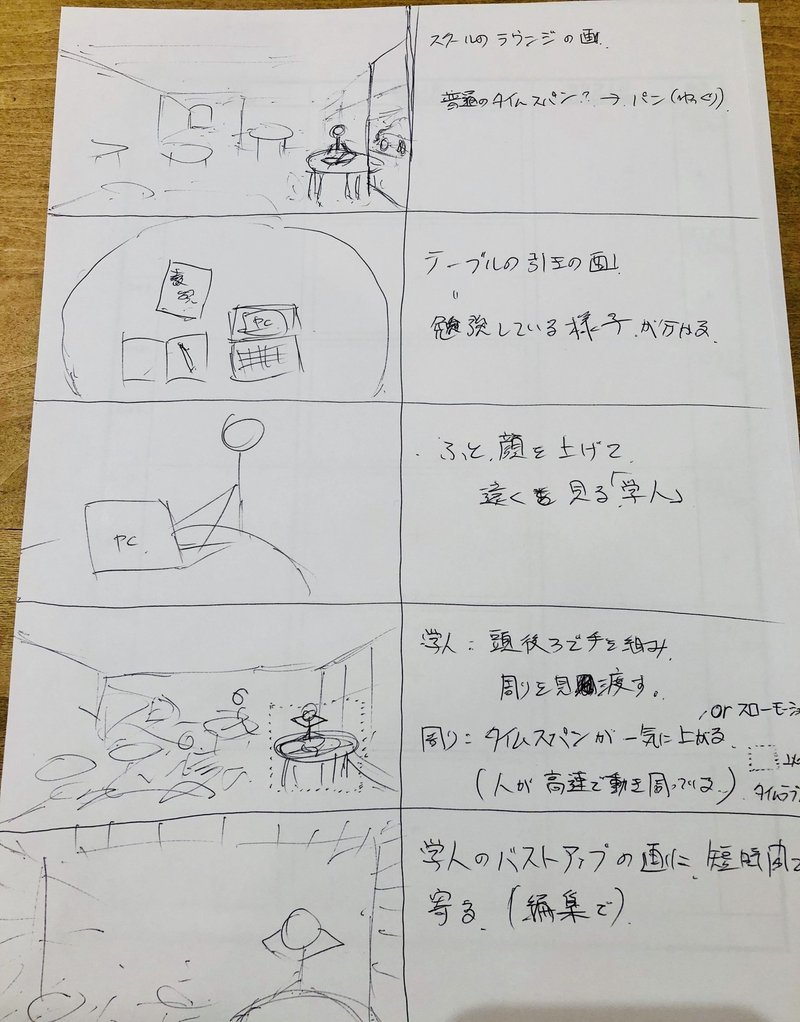 スクールのラウンジの画.
普通のタイムスパン? → パン(ゆっくり).
表現
PC
テーブルの引きの画.
〃
勉強している様子が分かる.
・ふと、顔を上げて
遠くを見る「学人」
PC.
学人: 頭後ろで手を組み、
周りを見渡す。
, or スローモーショ
周り: タイムスパンが一気に上がる.
(人が高速で動き周っている.)
タイムラプ
学人のバストアップの画に、短時間で
寄る.(編集で).